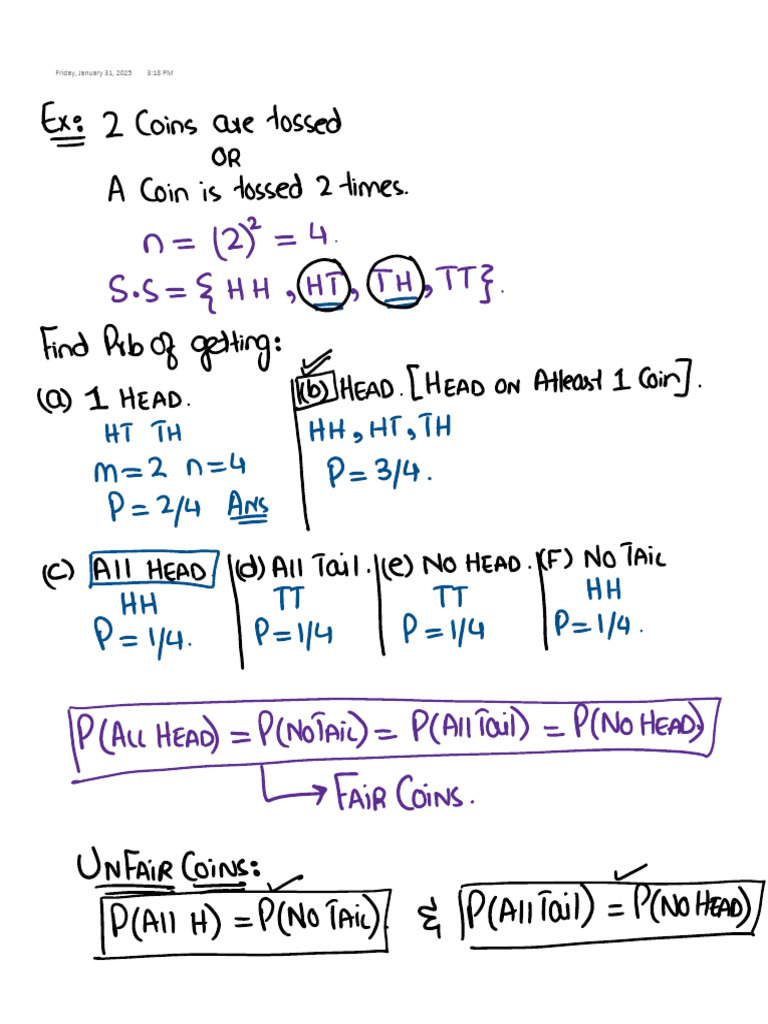 Friday, January 31, 2025 3:18 PM
Ex: 2 Coins are tossed
OR
A Coin is tossed 2 times.
n = (2)² = 4.
S.S = { HH , HT , TH , TT }.
Find Prb of getting:
(a) 1 HEAD.
HT TH
m = 2 n = 4
P = 2/4 Ans
(b) HEAD. [HEAD ON Atleast 1 Coin].
HH , HT , TH
P = 3/4.
(c) All HEAD
HH
P = 1/4.
(d) All Tail.
TT
P = 1/4
(e) NO HEAD.
TT
P = 1/4
(F) NO TAIL
HH
P = 1/4.
P(ALL HEAD) = P(NO TAIL) = P(All Tail) = P(NO HEAD).
FAIR COINS.
UNFAIR COINS:
P(All H) = P(NO TAIL). & P(All Tail) = P(NO HEAD)